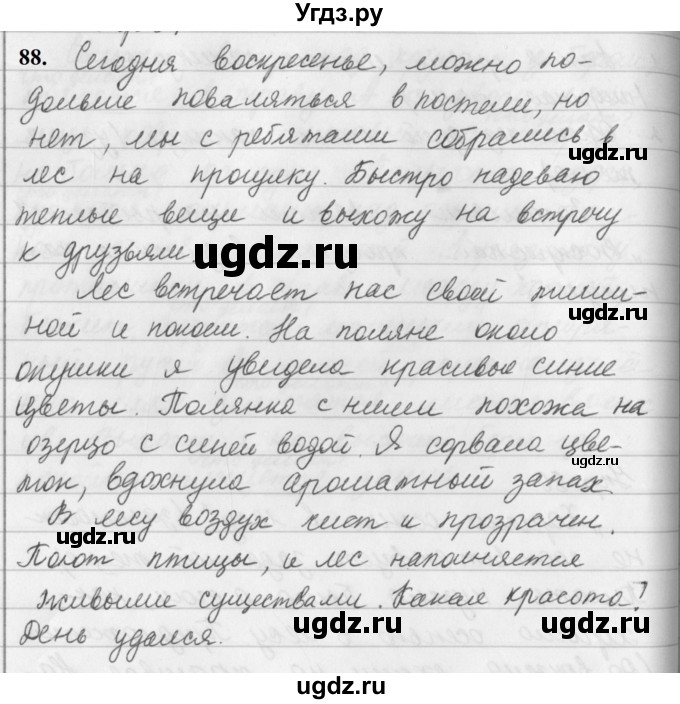 Угдз.ру
88. Сегодня воскресенье, можно по-
дольше поваляться в постели, но
нет, мы с ребятами собрались в
ugdz.ru
лес на прогулку. Быстро надеваю
теплые вещи и выхожу на встречу
к друзьям.
ugdz.ru
Лес встречает нас своей тиши-
ной и покоем. На поляне около
ugdz.ru
опушки я увидела красивые синие
цветы. Полянка с ними похожа на
озерцо с синей водой. Я сорвала цве-
ugdz.ru
ток, вдохнула ароматный запах
В лесу воздух чист и прозрачен.
ugdz.ru
Поют птицы, и лес наполняется
живыми существами. Какая красота!
День удался.
ugdz.ru
ugdz.ru
ugdz.ru